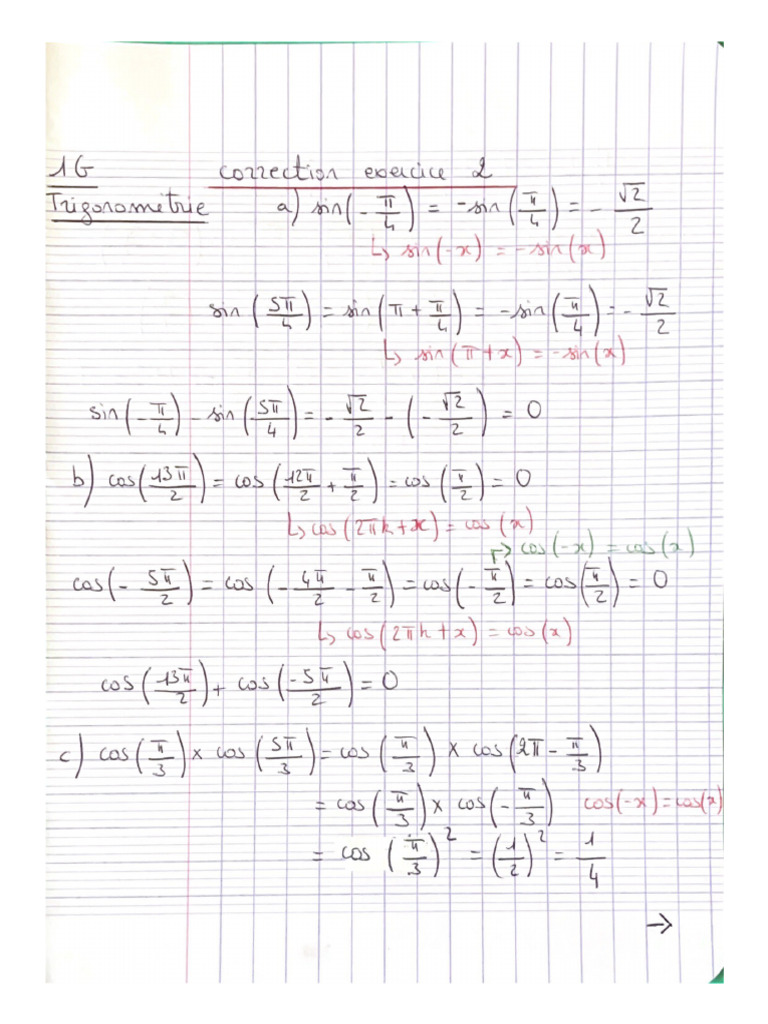 1G correction exercice 2
Trigonométrie a) sin(-π/4) = -sin(π/4) = -√2/2
↳ sin(-x) = -sin(x)
sin(5π/4) = sin(π + π/4) = -sin(π/4) = -√2/2
↳ sin(π+x) = -sin(x)
sin(-π/4) - sin(5π/4) = -√2/2 - (-√2/2) = 0
b) cos(13π/2) = cos(12π/2 + π/2) = cos(π/2) = 0
↳ cos(2πk+x) = cos(x)
↱ cos(-x) = cos(x)
cos(-5π/2) = cos(-4π/2 - π/2) = cos(-π/2) = cos(π/2) = 0
↳ cos(2πk+x) = cos(x)
cos(13π/2) + cos(-5π/2) = 0
c) cos(π/3) × cos(5π/3) = cos(π/3) × cos(2π - π/3)
= cos(π/3) × cos(-π/3) cos(-x) = cos(x)
= cos(π/3)² = (1/2)² = 1/4
→